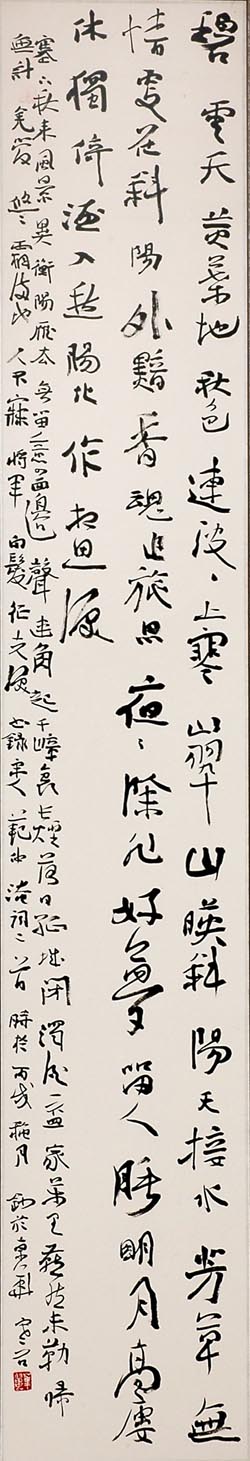 碧雲天黄葉地秋色連波、上寒翠山映斜陽天接水芳草無
情更在斜陽外黯香魂追旅思夜、除非好夢留人睡明月高廔
休獨倚酒入愁腸化作相思淚
塞下秋來風景異衡陽雁去無留意四面邊聲連角起千嶂裏長煙落日孤城閉濁酒一盃家萬里燕然未勒歸
無計羌管悠、霜滿地人不寐將軍白髮征夫淚錄宋人范仲淹詞二首時於丙戌月於